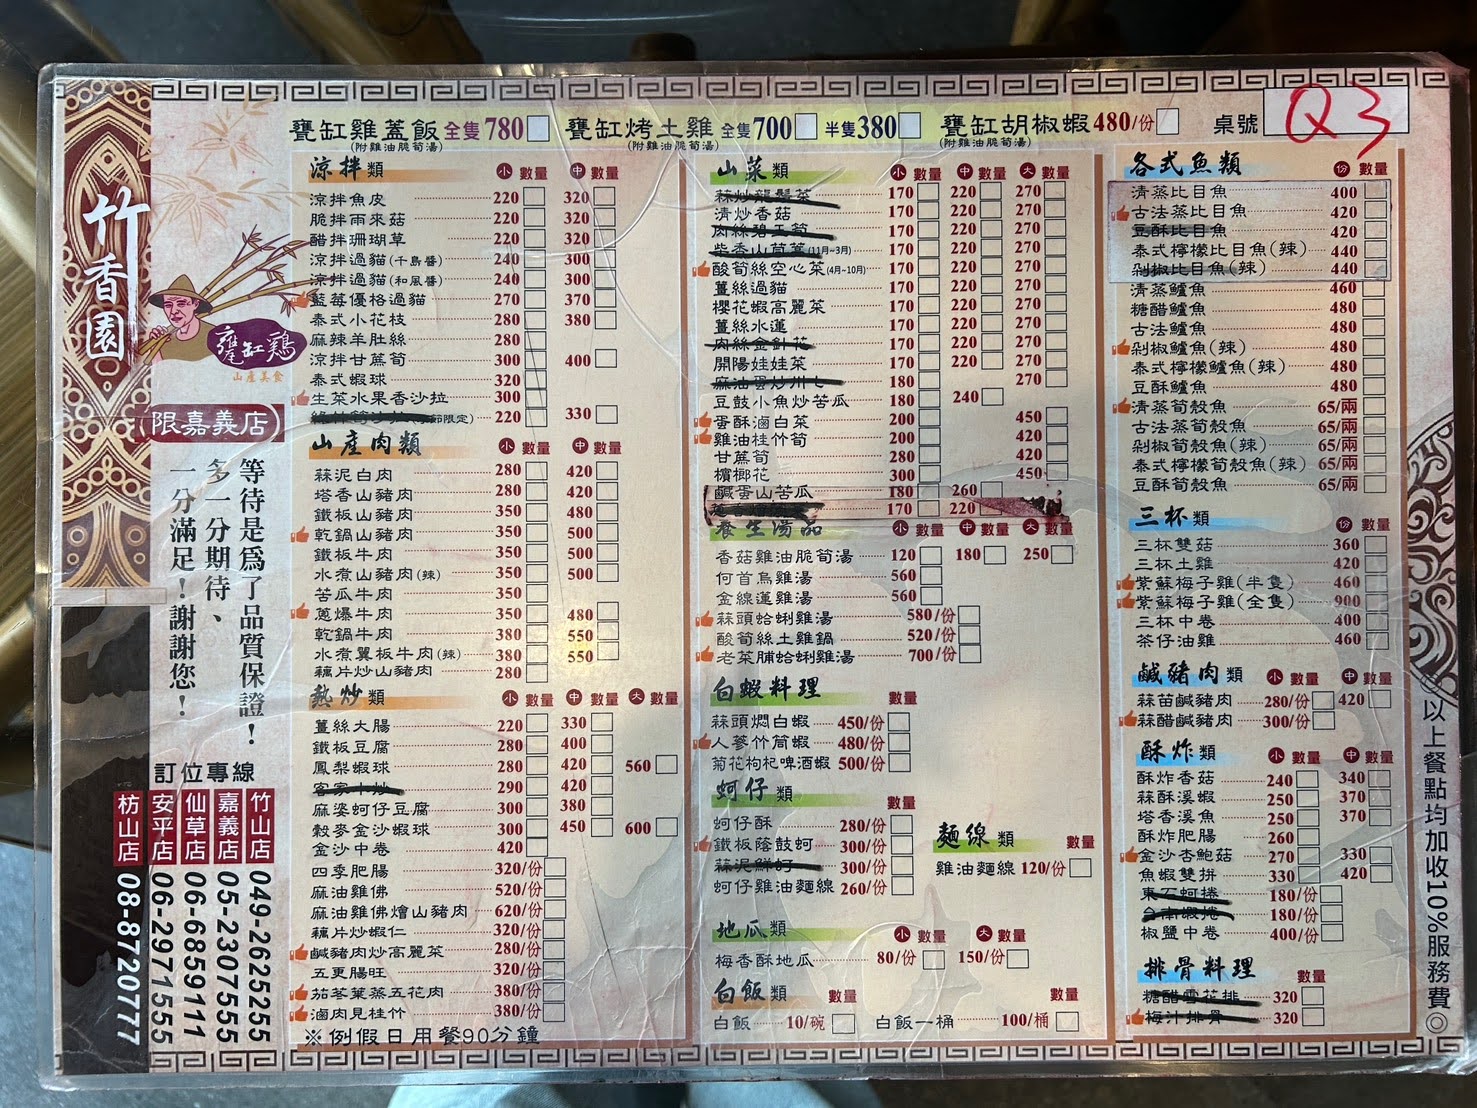 甕缸雞蓋飯 全隻780
(附雞油脆筍湯)
甕缸烤土雞 全隻700 半隻380
(附雞油脆筍湯)
甕缸胡椒蝦 480/份
(附雞油脆筍湯)
桌號 Q3
竹香園
甕缸鷄
山產美食
限嘉義店
等待是為了品質保證！
多一分期待、
一分滿足！謝謝您！
訂位專線
竹山店 049-2625255
嘉義店 05-2307555
仙草店 06-6859111
安平店 06-2971555
枋山店 08-8720777
涼拌類 小 數量 中 數量
涼拌魚皮 220 320
脆拌雨來菇 220 320
醋拌珊瑚草 220 320
涼拌過貓(千島醬) 240 300
涼拌過貓(和風醬) 240 300
藍莓優格過貓 270 370
泰式小花枝 280 380
麻辣羊肚絲 280
涼拌甘蔗筍 300 400
泰式蝦球 320
生菜水果香沙拉 300
節限定) 220 330
山產肉類 小 數量 中 數量
蒜泥白肉 280 420
塔香山豬肉 280 420
鐵板山豬肉 350 480
乾鍋山豬肉 350 500
鐵板牛肉 350 500
水煮山豬肉(辣) 350 500
苦瓜牛肉 350
蔥爆牛肉 350 480
乾鍋牛肉 380 550
水煮翼板牛肉(辣) 380 550
藕片炒山豬肉 280
熱炒類 小 數量 中 數量 大 數量
薑絲大腸 220 330
鐵板豆腐 280 400
鳳梨蝦球 280 420 560
客家小炒 290 420
麻婆蚵仔豆腐 300 380
穀麥金沙蝦球 300 450 600
金沙中卷 420
四季肥腸 320/份
麻油雞佛 520/份
麻油雞佛燴山豬肉 620/份
藕片炒蝦仁 320/份
鹹豬肉炒高麗菜 280/份
五更腸旺 320/份
茄苳葉蒸五花肉 380/份
滷肉見桂竹 380/份
※例假日用餐90分鐘
山菜類 小 數量 中 數量 大 數量
蒜炒龍鬚菜 170 220 270
清炒香菇 170 220 270
肉絲碧玉筍 170 220 270
柴香山茼蒿(11月~3月) 170 220 270
酸筍絲空心菜(4月~10月) 170 220 270
薑絲過貓 170 220 270
櫻花蝦高麗菜 170 220 270
薑絲水蓮 170 220 270
肉絲金針花 170 220 270
開陽娃娃菜 170 220 270
180 270
豆鼓小魚炒苦瓜 180 240
蛋酥滷白菜 200 450
雞油桂竹筍 200 420
甘蔗筍 280 420
檳榔花 300 450
鹹蛋山苦瓜 180 260
170 220
養生湯品 小 數量 中 數量 大 數量
香菇雞油脆筍湯 120 180 250
何首烏雞湯 560
金線蓮雞湯 560
蒜頭蛤蜊雞湯 580/份
酸筍絲土雞鍋 520/份
老菜脯蛤蜊雞湯 700/份
白蝦料理 數量
蒜頭燜白蝦 450/份
人蔘竹筒蝦 480/份
菊花枸杞啤酒蝦 500/份
蚵仔類 數量
蚵仔酥 280/份
鐵板蔭鼓蚵 300/份
蒜泥鮮蚵 300/份
蚵仔雞油麵線 260/份
麵線類 數量
雞油麵線 120/份
地瓜類 小 數量 大 數量
梅香酥地瓜 80/份 150/份
白飯類 數量 數量
白飯 10/碗 白飯一桶 100/桶
各式魚類 份 數量
清蒸比目魚 400
古法蒸比目魚 420
豆酥比目魚 420
泰式檸檬比目魚(辣) 440
剁椒比目魚(辣) 440
清蒸鱸魚 460
糖醋鱸魚 480
古法鱸魚 480
剁椒鱸魚(辣) 480
泰式檸檬鱸魚(辣) 480
豆酥鱸魚 480
清蒸筍殼魚 65/兩
古法蒸筍殼魚 65/兩
剁椒筍殼魚(辣) 65/兩
泰式檸檬筍殼魚(辣) 65/兩
豆酥筍殼魚 65/兩
三杯類 份 數量
三杯雙菇 360
三杯土雞 420
紫蘇梅子雞(半隻) 460
紫蘇梅子雞(全隻) 900
三杯中卷 400
茶仔油雞 460
鹹豬肉類 小 數量 中 數量
蒜苗鹹豬肉 280/份 420
蒜醋鹹豬肉 300/份
酥炸類 小 數量 中 數量
酥炸香菇 240 340
蒜酥溪蝦 250 370
塔香溪魚 250 370
酥炸肥腸 260
金沙杏鮑菇 270 330
魚蝦雙拼 330 420
東石蚵捲 180/份
台南蝦捲 180/份
椒鹽中卷 400/份
排骨料理 數量
糖醋雪花排 320
梅汁排骨 320
以上餐點均加收10%服務費◎